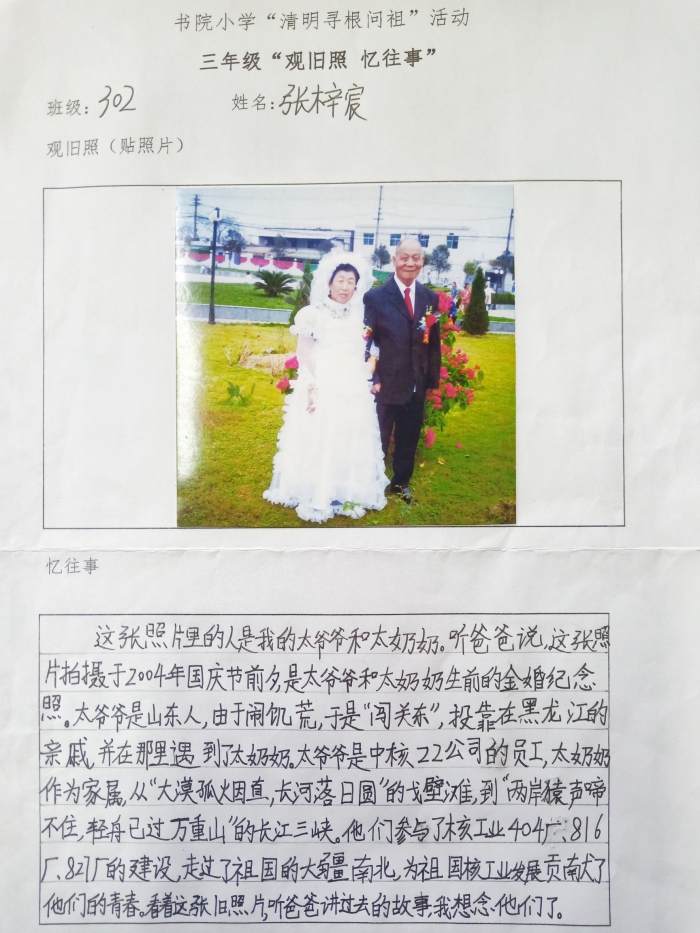 书院小学“清明寻根问祖”活动
三年级“观旧照 忆往事”
班级:302 姓名:张梓宸
观旧照(贴照片)
忆往事
这张照片里的人是我的太爷爷和太奶奶。听爸爸说,这张照
片拍摄于2004年国庆节前夕,是太爷爷和太奶奶生前的金婚纪念
照。太爷爷是山东人,由于闹饥荒,于是“闯关东”,投靠在黑龙江的
亲戚,并在那里遇到了太奶奶。太爷爷是中核22公司的员工,太奶奶
作为家属,从“大漠孤烟直,长河落日圆”的戈壁滩,到“两岸猿声啼
不住,轻舟已过万重山”的长江三峡。他们参与了核工业404厂、816
厂、827厂的建设,走过了祖国的大疆南北,为祖国核工业发展贡献了
他们的青春。看着这张旧照片,听爸爸讲过去的故事,我想念他们了。